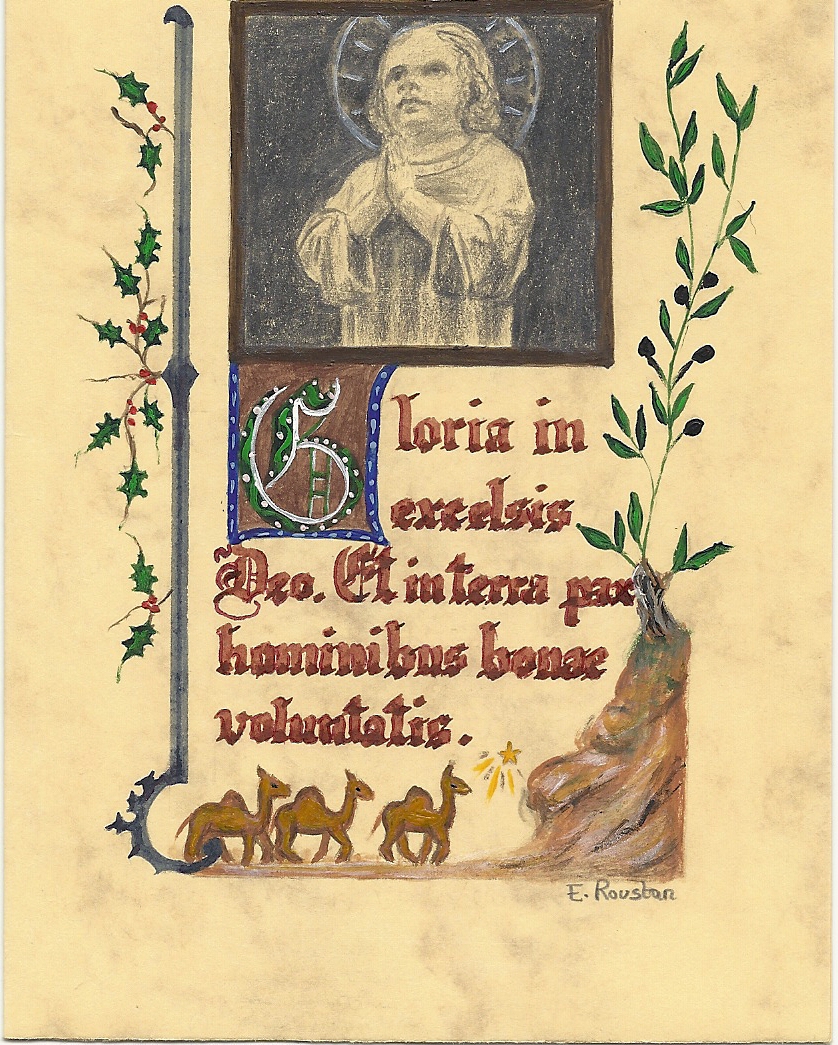 Gloria in
excelsis
Deo. Et in terra pax
hominibus bonae
voluntatis.
E. Roustan